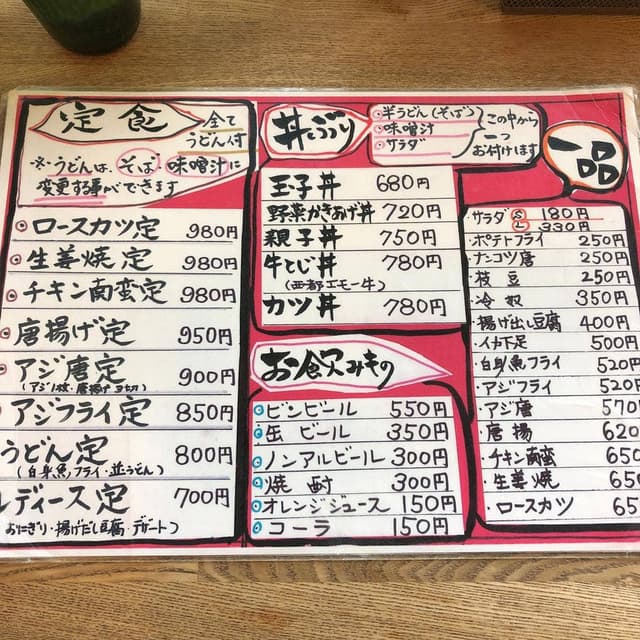 定食
全て
うどん付
※うどんは、そば、味噌汁に
変更する事ができます
ロースカツ定 980円
生姜焼定 980円
チキン南蛮定 980円
唐揚げ定 950円
アジ唐定 900円
アジフライ定 850円
うどん定 800円
(白身魚フライ・並うどん)
レディース定 700円
おにぎり・揚げだし豆腐・デザート)
丼ぶり
半うどん(そば)
味噌汁
サラダ
この中から
一つ
お付けします
玉子丼 680円
野菜かきあげ丼 720円
親子丼 750円
牛とじ丼 780円
(西都エモー牛)
カツ丼 780円
お飲みもの
ビンビール 550円
缶ビール 350円
ノンアルビール 300円
焼酎 300円
オレンジジュース 150円
コーラ 150円
一品
サラダ S 180円
L 330円
ポテトフライ 250円
ナンコツ唐 250円
枝豆 250円
冷奴 350円
揚げ出し豆腐 400円
イカ下足 500円
白身魚フライ 520円
アジフライ 520円
アジ唐 570
唐揚 620
チキン南蛮 650
生姜焼 650
ロースカツ 65